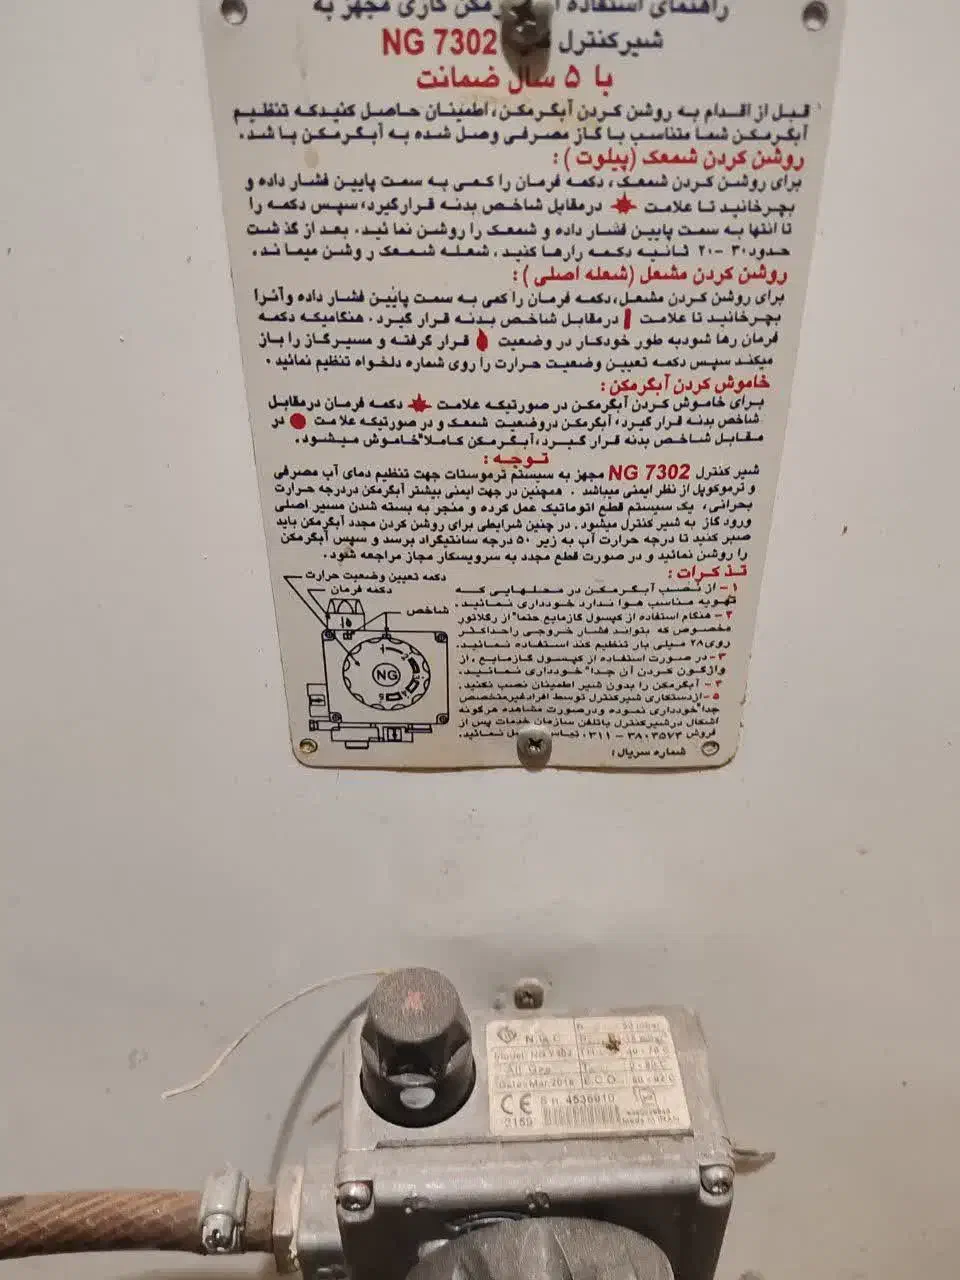 راهنمای استفاده از آبگرمکن گازی مجهز به
شیرکنترل NG 7302
با ۵ سال ضمانت
قبل از اقدام به روشن کردن آبگرمکن، اطمینان حاصل کنیدکه تنظیم
آبگرمکن شما متناسب با گاز مصرفی وصل شده به آبگرمکن باشد.
روشن کردن شمعک (پیلوت):
برای روشن کردن شمعک، دکمه فرمان را کمی به سمت پایین فشار داده و
بچرخانید تا علامت در مقابل شاخص بدنه قرارگیرد، سپس دکمه را
تا انتها به سمت پایین فشار داده و شمعک را روشن نمائید. بعد از گذشت
حدود ۳۰ - ۲۰ ثانیه دکمه رارها کنید، شعله شمعک روشن میماند.
روشن کردن مشعل (شعله اصلی):
برای روشن کردن مشعل، دکمه فرمان را کمی به سمت پایین فشار داده وآنرا
بچرخانید تا علامت در مقابل شاخص بدنه قرار گیرد. هنگامیکه دکمه
فرمان رها شودبه طور خودکار در وضعیت قرار گرفته و مسیرگاز را باز
میکند سپس دکمه تعیین وضعیت حرارت را روی شماره دلخواه تنظیم نمائید.
خاموش کردن آبگرمکن:
برای خاموش کردن آبگرمکن در صورتیکه علامت دکمه فرمان درمقابل
شاخص بدنه قرار گیرد، آبگرمکن دروضعیت شمعک و در صورتیکه علامت در
مقابل شاخص بدنه قرار گیرد، آبگرمکن کاملا" خاموش میشود.
توجه:
شیر کنترل NG 7302 مجهز به سیستم ترموستات جهت تنظیم دمای آب مصرفی
و ترموکوپل از نظر ایمنی میباشد. همچنین در جهت ایمنی بیشتر آبگرمکن دردرجه حرارت
بحرانی، یک سیستم قطع اتوماتیک عمل کرده و منجر به بسته شدن مسیر اصلی
ورود گاز به شیر کنترل میشود. در چنین شرایطی برای روشن کردن مجدد آبگرمکن باید
صبر کنید تا درجه حرارت آب به زیر ۵۰ درجه سانتیگراد برسد و سپس آبگرمکن
را روشن نمائید و در صورت قطع مجدد به سرویسکار مجاز مراجعه شود.
تذکرات:
۱- از نصب آبگرمکن در محلهایی که
تهویه مناسب هوا ندارد خودداری نمائید.
۲- هنگام استفاده از کپسول گازمایع حتما" از رگلاتور
مخصوص که بتواند فشار خروجی راحداکثر
روی ۲۸ میلی بار تنظیم کند استفاده نمائید.
۳- در صورت استفاده از کپسول گازمایع، از
واژگون کردن آن جدا" خودداری نمائید.
۴- آبگرمکن را بدون شیر اطمینان نصب نکنید.
۵- ازدستکاری شیرکنترل توسط افرادغیرمتخصص
جدا" خودداری نموده ودرصورت مشاهده هرگونه
اشکال درشیرکنترل باتلفن سازمان خدمات پس از
فروش ۳۸۰۳۵۷۳ - ۰۳۱۱ تماس حاصل نمائید.
شماره سریال:
دکمه تعیین وضعیت حرارت
دکمه فرمان
شاخص
NG
Model NG 7302
Date: Mar 2018
E.C.O.
CE
S.n. 4536910
2159
Made in IRAN